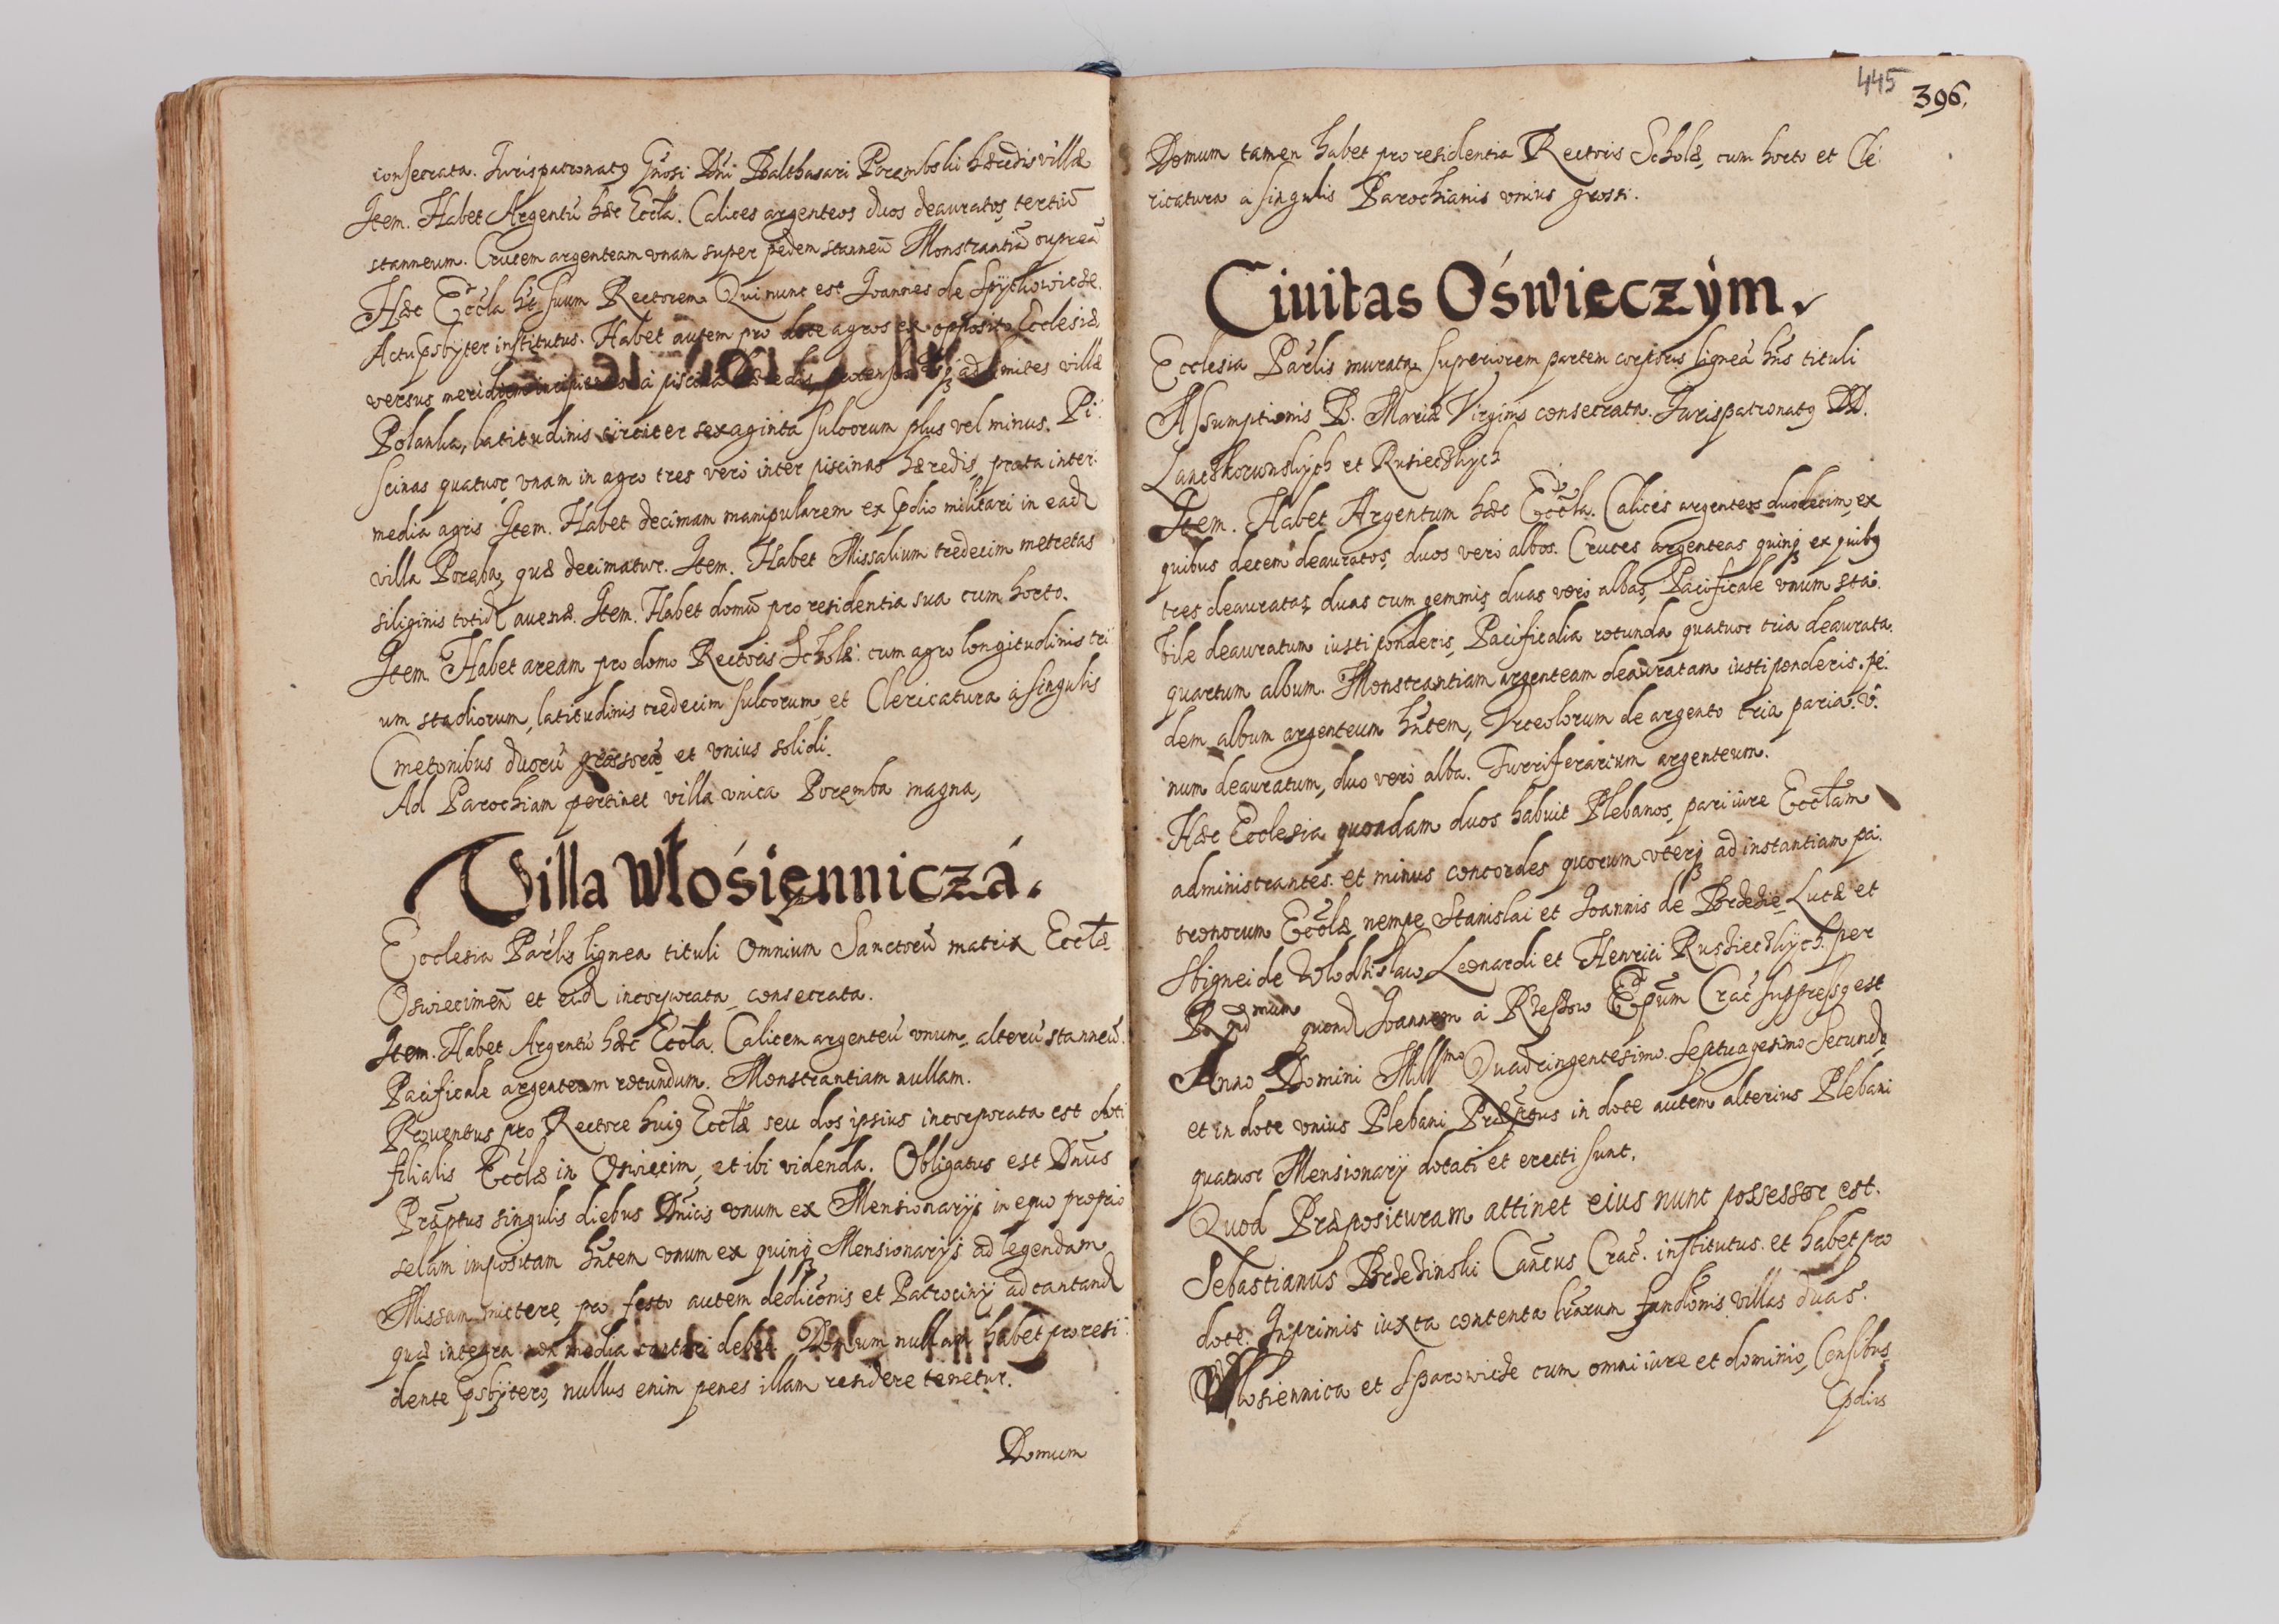 consecrata. Jurispatronatꝯ Gn̄osi Dn̄i Balthasari Porembski hæredis villæ
Item. Habet Argentū hæc Eccl̄a. Calices argenteos duos deauratos, tertiū
stanneum. Crucem argenteam vnam super pedem stanneū Monstrantiā cupreā
Hæc Eccl̄a ht̄ suum Rectorem Qui nunc est Joannes de Spÿtkowicze.
Actu p̄sbyter institutus. Habet autem pro dote agros ex opposito Ecclesiæ
versus meridiem incipientes à piscina hæredis, protensos vsqꝫ ad limites villæ
Polanka, latitudinis circiter sexaginta sulcorum plus vel minus. Pi:
scinas quatuor, vnam in agro tres verò inter piscinas hæredis, prata inter:
media agris Item. Habet decimam manipularem ex p̄dio militari in ead
villa Poręba, quæ decimatur. Item. Habet Missalium tredecim metretas
siliginis totid auenæ. Item. Habet domū pro residentia sua cum horto.
Item. Habet aream pro domo Rectoris Scholæ: cum agro longitudinis tri
um stadiorum, latitudinis tredecim sulcorum, et Clericatura à singulis
Cmetonibus duorū grossorū et vnius solidi.
Ad Parochiam pertinet villa vnica Poremba magna,
Villa Włosięnniczá.
Ecclesia Par̄lis lignea tituli Omnium Sanctorū matrix Eccl̄æ
Oswiecimen̄ et eid incorporata, consecrata.
Item. Habet Argentū hæc Eccl̄a. Calicem argenteū vnum, alterū stanneū.
Pacificale argenteam rotundum. Monstrantiam nullam.
Prouentus pro Rectore huiꝯ Eccl̄æ seu dos ipsius incorporata est doti
filialis Eccl̄æ in Oswiecim, et ibi videnda. Obligatus est Dn̄us
Præp̄tus singulis diebus Dn̄icis vnum ex Mensionarijs in equo proprio
selam impositam hn̄tem vnum ex quinqꝫ Mensionarijs ad legendam
Missam mittere, pro festo autem dedicōnis et Patrocinÿ ad cantand
quæ integra non media cantari debet. Domum nullam habet pro resi:
dente p̄sbÿtero, nullus enim penes illam residere tenetur.
Domum
445
396.
Domum tamen habet pro residentia Rectoris Scholæ, cum horto et Cle:
ricatura à singulis Parochianis vnius grossi.
Ciuitas Oświeczÿm.
Ecclesia Par̄lis murata superiorem partem corporis ligneā hn̄s tituli
Assumptionis B. Mariæ Virginis consecrata. Jurispatronatꝯ DD.
Lanczkorunskÿch et Rusieczkÿch
Item. Habet Argentum hæc Eccl̄a. Calices argenteos duodecim, ex
quibus decem deauratos, duos verò albos. Cruces argenteas quinqꝫ ex quibꝯ
tres deauratas, duas cum gemmis, duas verò albas, Pacificale vnum sta:
bile deauratum iusti ponderis, Pacificalia rotunda quatuor tria deaurata.
quartum album. Monstrantiam argenteam deauratam iusti ponderis. pe:
dem album argenteum hn̄tem, Vrceolorum de argento tria paria. v:
num deauratum, duo verò alba. Turriferarium argenteum.
Hæc Ecclesia quondam duos habuit Plebanos, pari iure Eccl̄am
administrantes. et minus concordes quorum vterqꝫ ad instantiam pa:
tronorum Eccl̄æ, nempe Stanislai et Joannis de Brzezie Lucæ et
Sbignei de Wlodzislaw, Leonardi et Henrici Ruszieczkÿch per
Rndmum quond Joannem à Rzeszow Ep̄um Crac̄ suppressꝯ est
Anno Domini Millmo Quadringentesimo Septuagesimo Secundo
et in dote vnius Plebani Præp̄tus in dote autem alterius Plebani
quatuor Mensionarÿ dotati et erecti sunt.
Quod Præposituram attinet eius nunc possessor est.
Sebastianus Brzezinski Can̄cus Crac̄. institutus. et habet pro
dote. Inprimis iuxta contenta lr̄arum fundōnis villas duas.
Wlosiennica et Sparowicze cum omni iure et dominio, Censibus
p̄diis